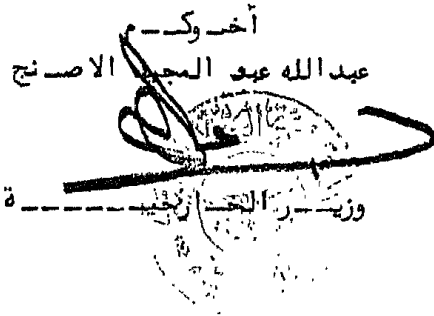 أخوكـــم
عبد الله عبد المجيد الاصـنج
وزيـــر الخـارجيــــــة